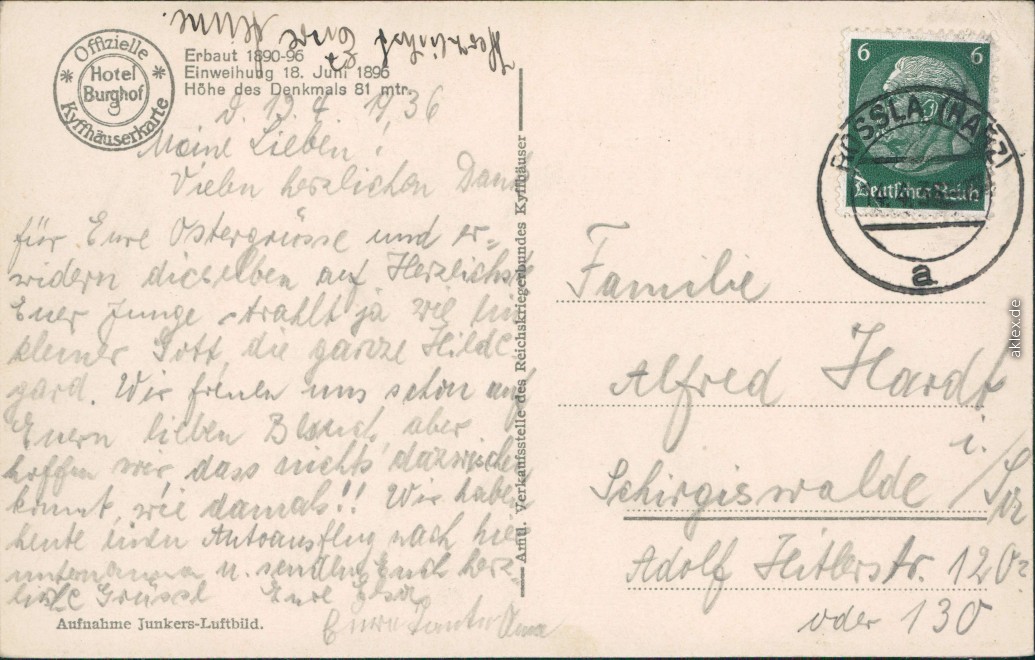 Offizielle
Hotel
Burghof
Kyffhäuserkarte
Erbaut 1890-96
Einweihung 18. Juni 1896
Höhe des Denkmals 81 mtr.
Herzlichst Eure
d. 19.4.1936
Meine Lieben!
Vielen herzlichen Dank
für Eure Ostergrüsse und er=
widern dieselben auf Herzlichste
Euer Junge strahlt ja wie ein
kleiner Gott, die ganze Hilde
gard. Wir freuen uns schon auf
Euern lieben Besuch, aber
hoffen wir, dass nichts dazwischen
kommt, wie damals!! Wir haben
heute einen Autoausflug nach hier
unternommen u. senden Euch herz-
liche Grüsse Eure
Eure
Aufnahme Junkers-Luftbild.
Amtl. Verkaufsstelle des Reichskriegerbundes Kyffhäuser
6 6
Deutsches Reich
ROSSLA (HARZ)
a
Familie
Alfred Hardt
Schirgiswalde i/Sa
Adolf Hitlerstr. 120?
oder 130
aklex.de